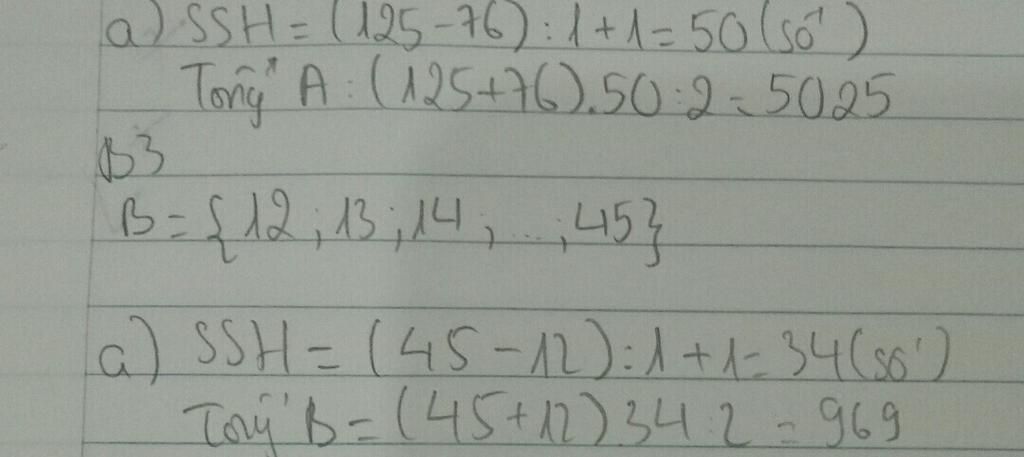 a) SSH = (125-76) : 1 + 1 = 50 (số)
Tổng A : (125+76).50:2 = 5025
B3
B = {12 ; 13 ; 14 ; ... ; 45}
a) SSH = (45-12) : 1 + 1 = 34 (số)
Tổng B = (45+12).34:2 = 969